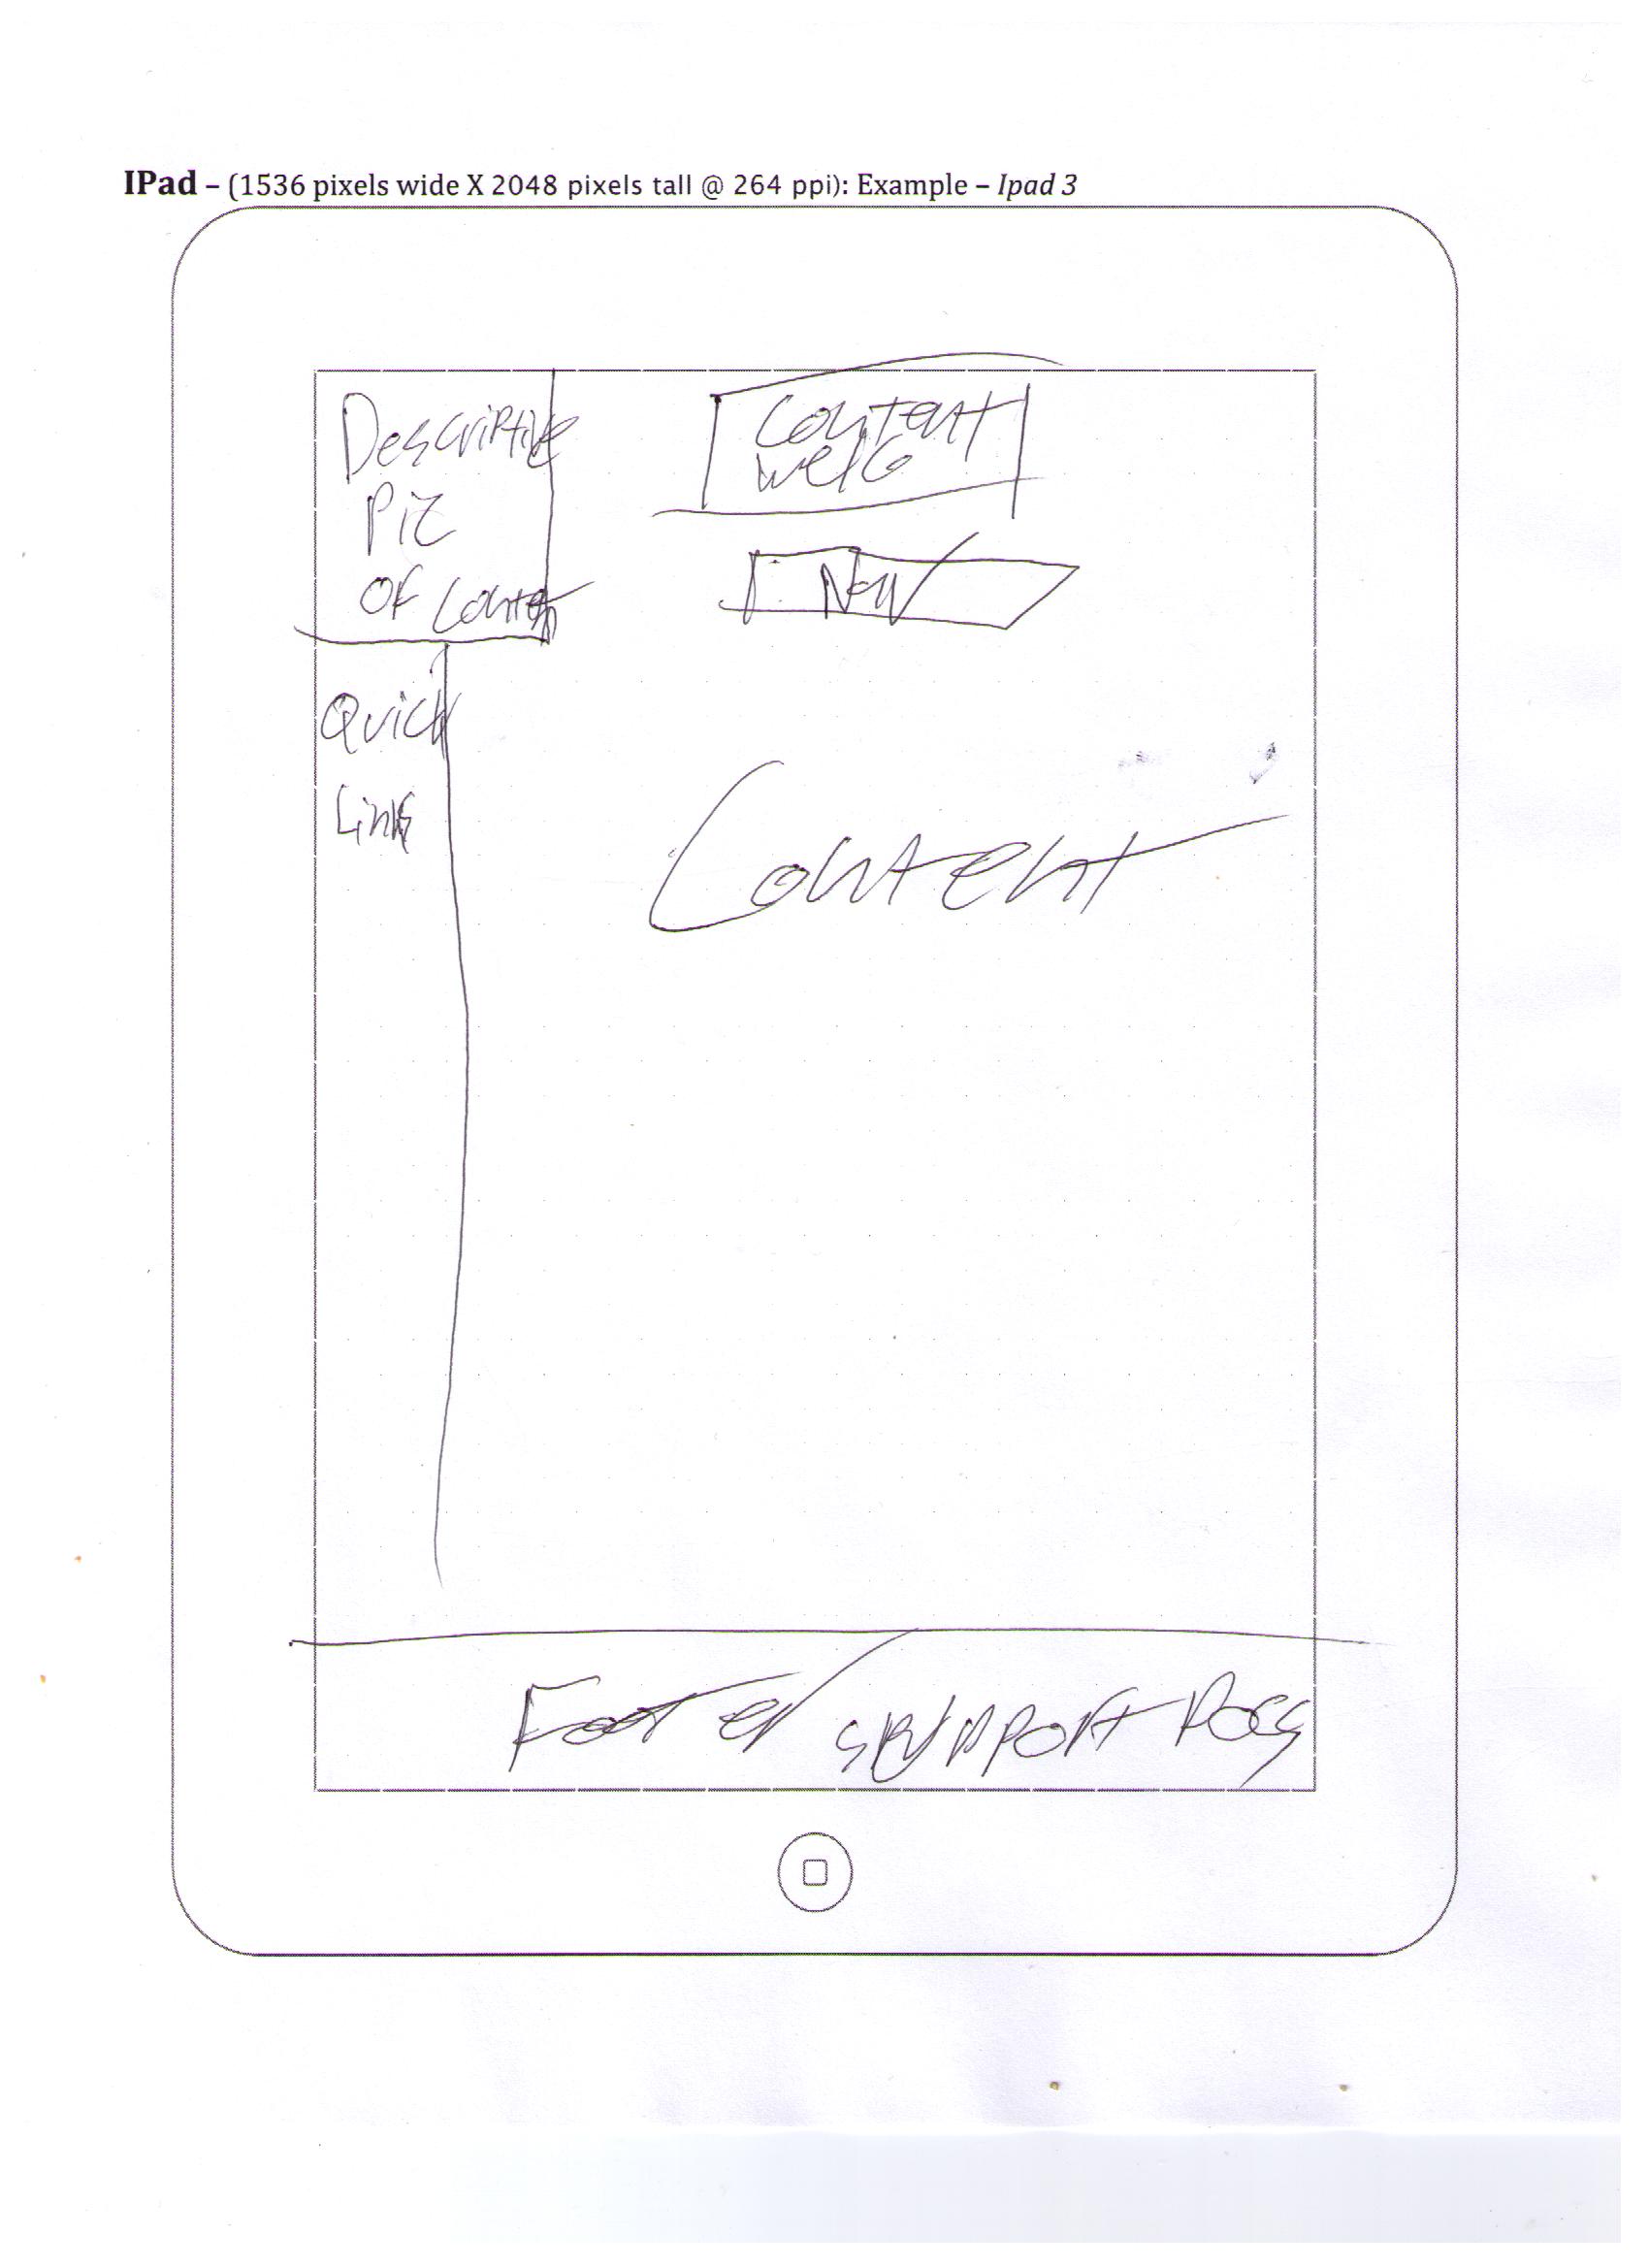 IPad – (1536 pixels wide X 2048 pixels tall @ 264 ppi): Example – Ipad 3
Descriptive
Pic
Of Conten
Content
Quick
Links
Content
Footer support Docs